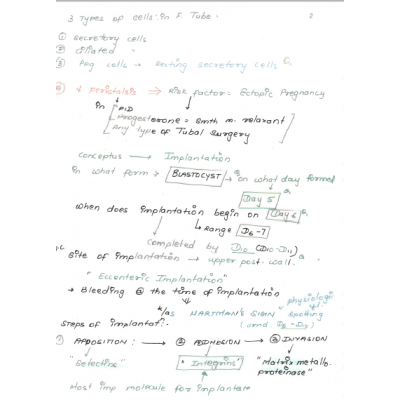 3 Types of cells in F. Tube. 2
① Secretory cells
② Ciliated "
③ Peg cells → Resting secretory cells Q.
④ ↓ Peristalsis ⇒ Risk factor = Ectopic Pregnancy
in PID
Progesterone = Smth m. relaxant
Any type of Tubal surgery
Conceptus → Implantation
in what form → BLASTOCYST → on what day formed
Day 5
When does implantation begin on Day 6
↳ Range D6-7
completed by D10 (D10-D11)
Site of implantation → upper post. wall.
"Eccentric Implantation"
→ Bleeding @ the time of implantation
k/as HARTMAN'S SIGN
physiologic spotting
Steps of implantatⁿ:
① APPOSITION: → ② ADHESION → ③ INVASION
"Selectins" "Integrins" "Matrix metallo-
proteinase"
Most imp molecule for implantatⁿ